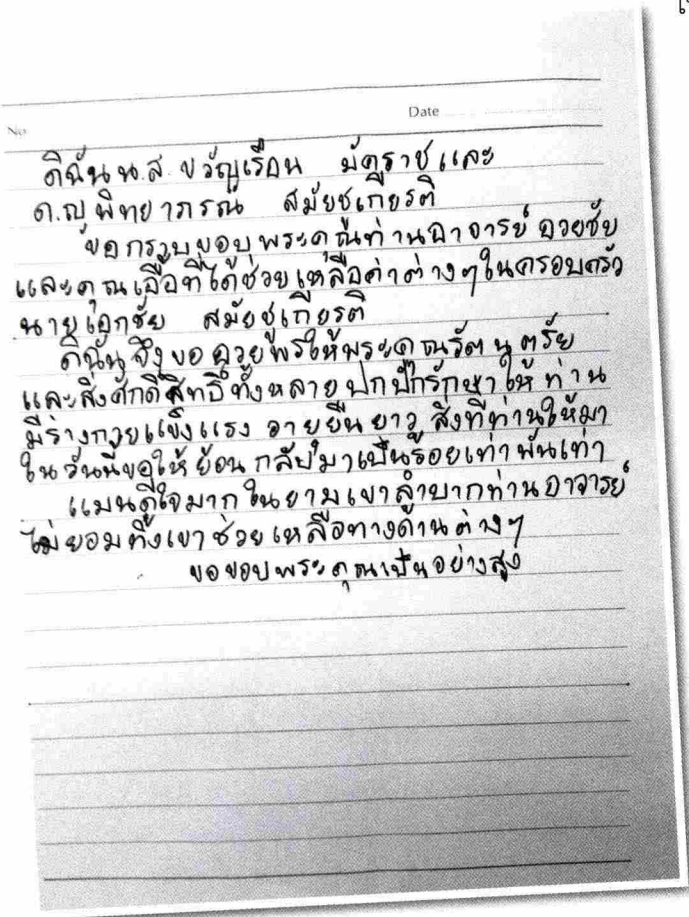 No.
Date
ดิฉัน น.ส. ขวัญเรือน มัคราช และ
ด.ญ พิทยาภรณ์ สมัยชูเกียรติ
ขอกราบขอบพระคุณท่านอาจารย์ อวยชัย
และคุณเอื้อที่ได้ช่วยเหลือค่าต่างๆในครอบครัว
นายเอกชัย สมัยชูเกียรติ
ดิฉันจึงขออวยพรให้พระคุณรัตนตรัย
และสิ่งศักดิ์สิทธิ์ทั้งหลายปกปักรักษาให้ท่าน
มีร่างกายแข็งแรง อายุยืนยาว สิ่งที่ท่านให้มา
ในวันนี้ขอให้ย้อนกลับมาเป็นร้อยเท่าพันเท่า
แมนดีใจมากในยามเขาลำบากท่านอาจารย์
ไม่ยอมทิ้งเขาช่วยเหลือทางด้านต่างๆ
ขอขอบพระคุณเป็นอย่างสูง